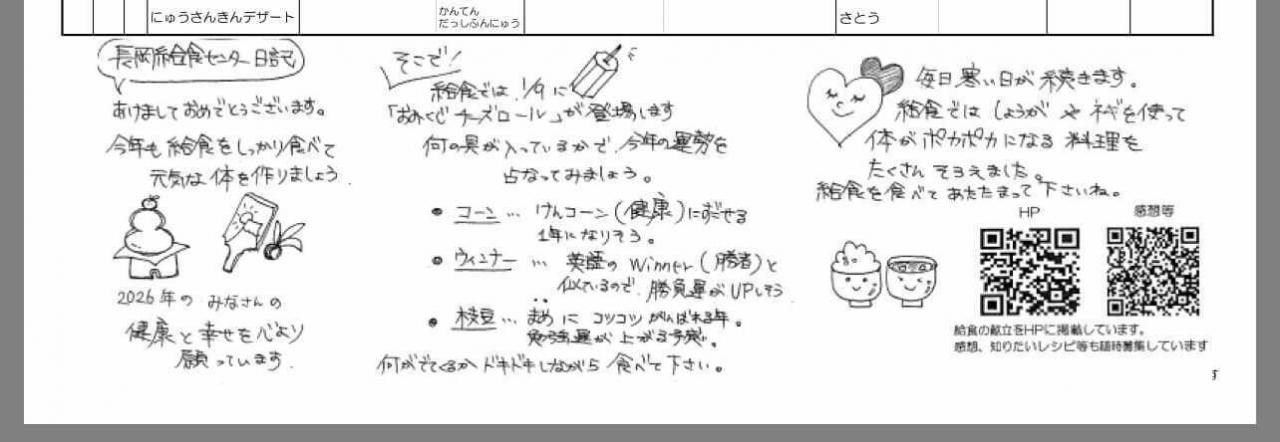 にゅうさんきんデザート
かんてん
だっしふんにゅう
さとう
長岡給食センター日記
あけましておめでとうございます。
今年も給食をしっかり食べて
元気な体を作りましょう.
2026年の みなさんの
健康と幸せを心より
願っています.
そこで!
給食では、1/9に
「おみくじチーズロール」が登場します
何の具が入っているかで、今年の運勢を
占なってみましょう。
• コーン … けんコーン(健康)にすごせる
1年になりそう。
• ウィンナー … 英語の winner(勝者)と
似ているので、勝負運がUPしそう
• 枝豆 … まめに コツコツ がんばれる年。
勉強運が上がる予感。
何がでてくるかドキドキしながら 食べて下さい。
毎日寒い日が続きます。
給食では しょうが や ネギを使って
体がポカポカになる 料理を
たくさん そろえました。
給食を食べて あたたまって下さいね。
HP
感想等
給食の献立をHPに掲載しています。
感想、知りたいレシピ等も随時募集しています
す